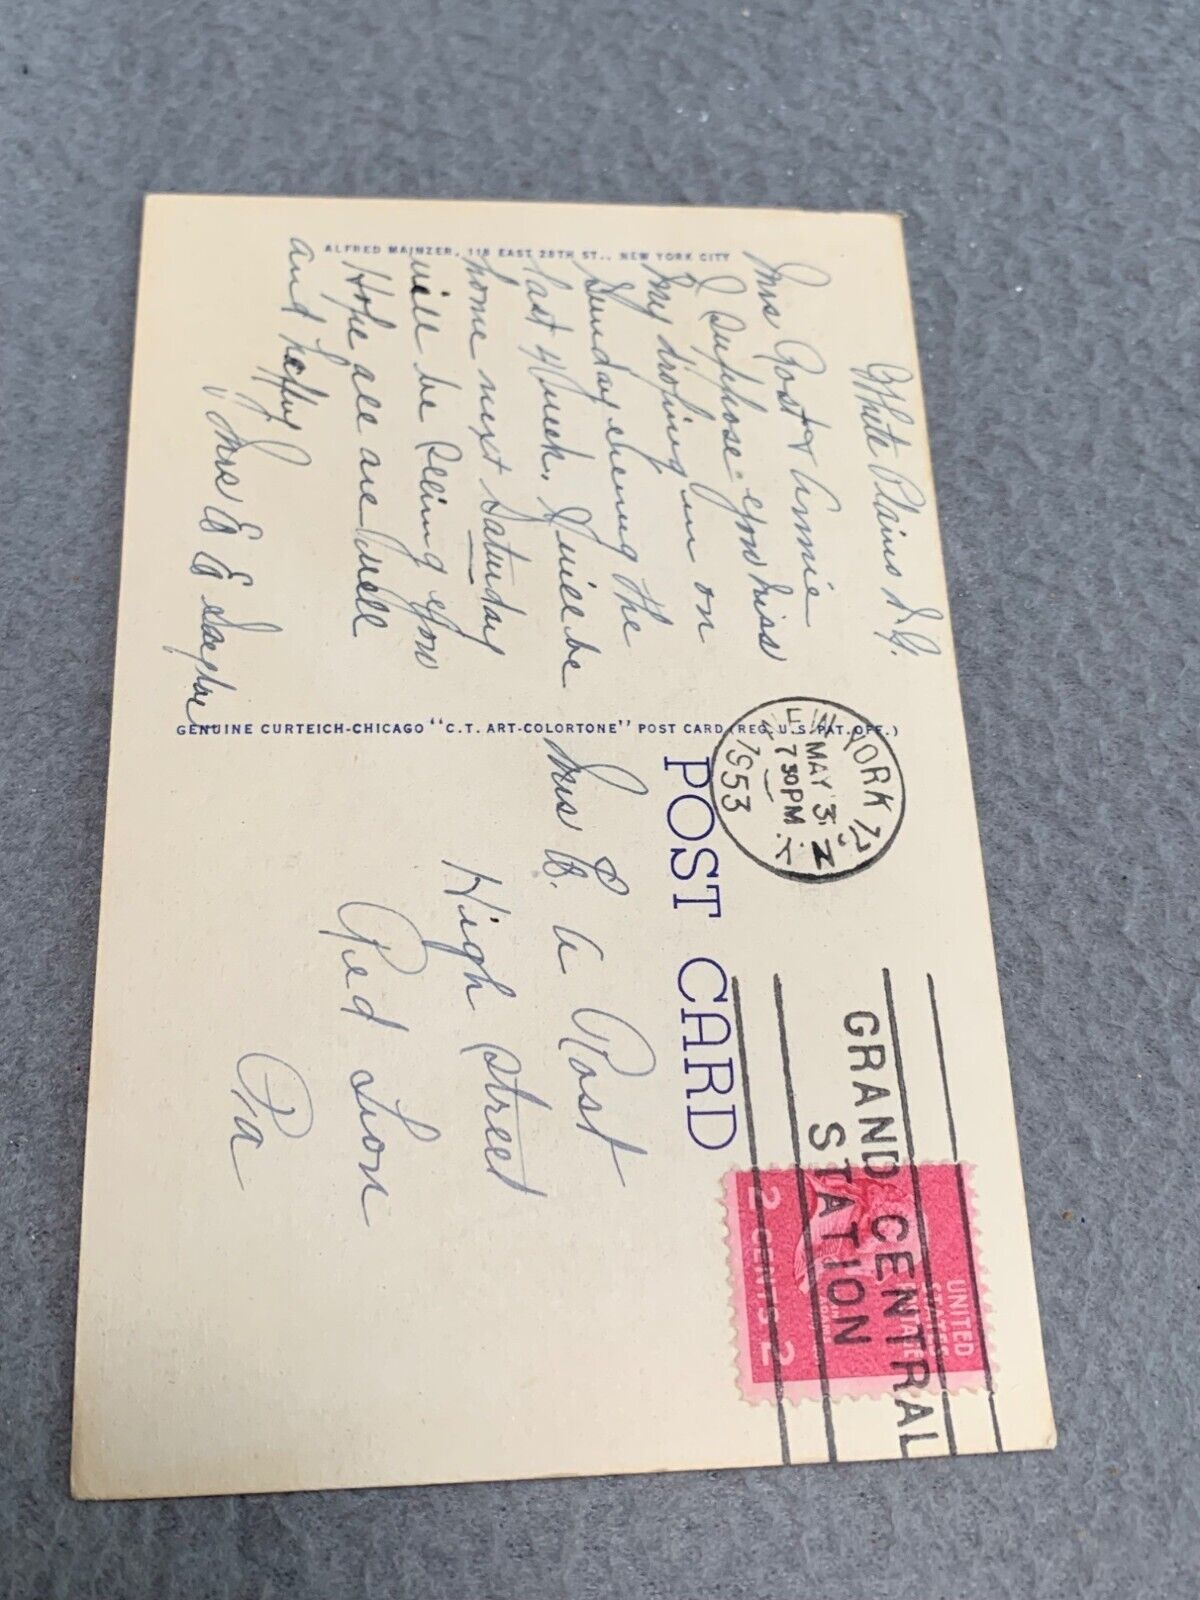 White Plains N.Y.
Mrs Post & Annie
I Suppose you miss
my droping in on
Sunday evening the
last 4 week. I will be
home next Saturday
will be seeing you
Hope all are well
and happy
Mrs E E Saylor
ALFRED MAINZER, 118 EAST 28TH ST., NEW YORK CITY
GENUINE CURTEICH-CHICAGO "C.T. ART-COLORTONE" POST CARD (REG. U.S. PAT. OFF.)
POST CARD
NEW YORK, N.Y.
MAY 3
7 30 PM
1953
GRAND CENTRAL
STATION
UNITED
STATES
POSTAGE
2 CENTS 2
Mrs E. A Post
High Street
Red Lion
Pa